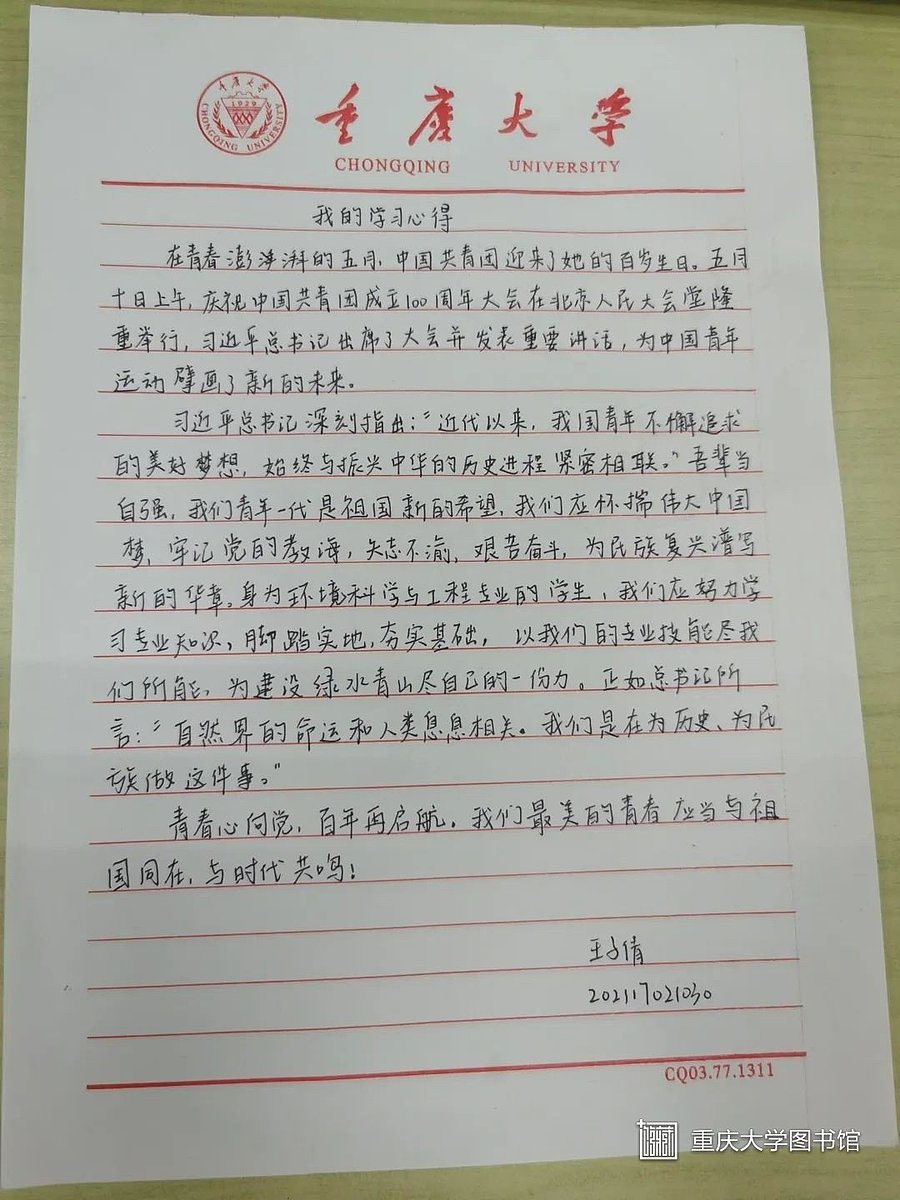 重庆大学
1929
CHONGQING UNIVERSITY
重庆大学
CHONGQING UNIVERSITY
我的学习心得
在青春澎湃的五月，中国共青团迎来了她的百岁生日。五月
十日上午，庆祝中国共青团成立100周年大会在北京人民大会堂隆
重举行，习近平总书记出席了大会并发表重要讲话，为中国青年
运动擘画了新的未来。
习近平总书记深刻指出：“近代以来，我国青年不懈追求
的美好梦想，始终与振兴中华的历史进程紧密相联。”吾辈当
自强，我们青年一代是祖国新的希望，我们应怀揣伟大中国
梦，牢记党的教诲，矢志不渝，艰苦奋斗，为民族复兴谱写
新的华章。身为环境科学与工程专业的学生，我们应努力学
习专业知识，脚踏实地，夯实基础，以我们的专业技能尽我
们所能，为建设绿水青山尽自己的一份力。正如总书记所
言：“自然界的命运和人类息息相关。我们是在为历史、为民
族做这件事。”
青春心向党，百年再启航。我们最美的青春应当与祖
国同在，与时代共鸣！
王子倩
202117021030
CQ03.77.1311
重庆大学图书馆